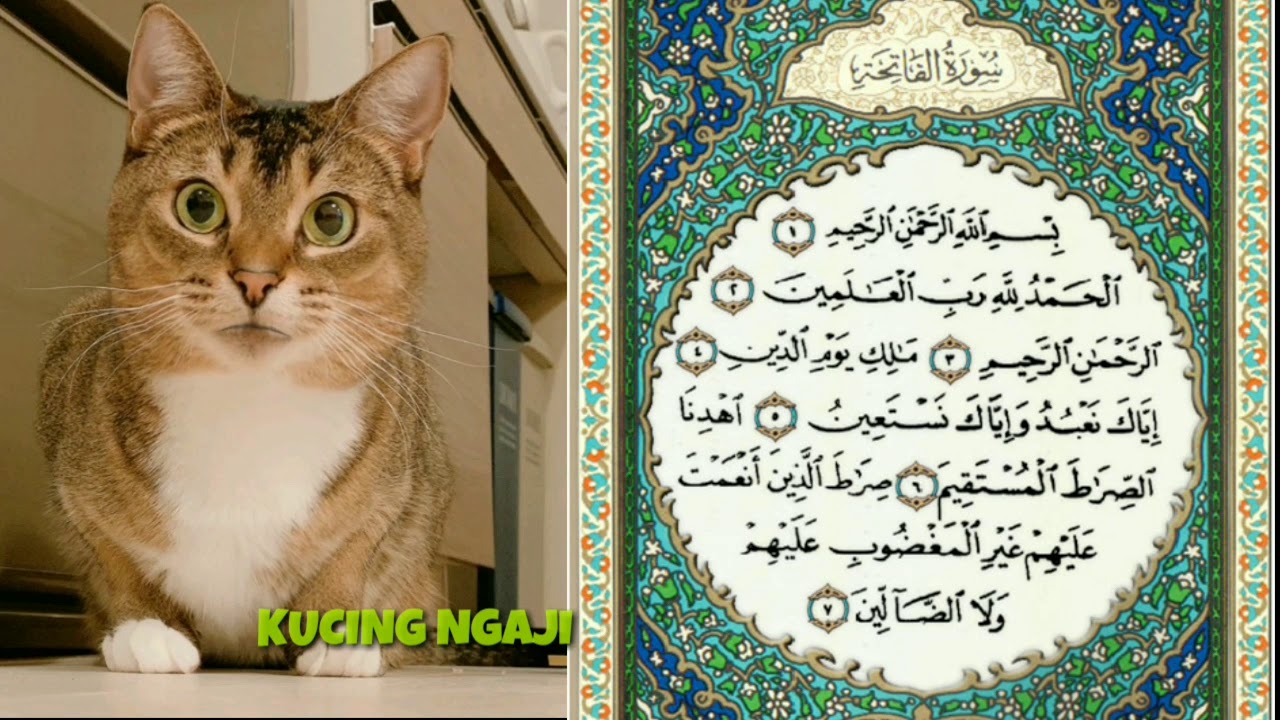 KUCING NGAJI
سُورَةُ الْفَاتِحَةِ
بِسْمِ ٱللَّهِ ٱلرَّحْمَٰنِ ٱلرَّحِيمِ ١
ٱلْحَمْدُ لِلَّهِ رَبِّ ٱلْعَٰلَمِينَ ٢
ٱلرَّحْمَٰنِ ٱلرَّحِيمِ ٣ مَٰلِكِ يَوْمِ ٱلدِّينِ ٤
إِيَّاكَ نَعْبُدُ وَإِيَّاكَ نَسْتَعِينُ ٥ ٱهْدِنَا
ٱلصِّرَٰطَ ٱلْمُسْتَقِيمَ ٦ صِرَٰطَ ٱلَّذِينَ أَنْعَمْتَ
عَلَيْهِمْ غَيْرِ ٱلْمَغْضُوبِ عَلَيْهِمْ
وَلَا ٱلضَّآلِّينَ ٧